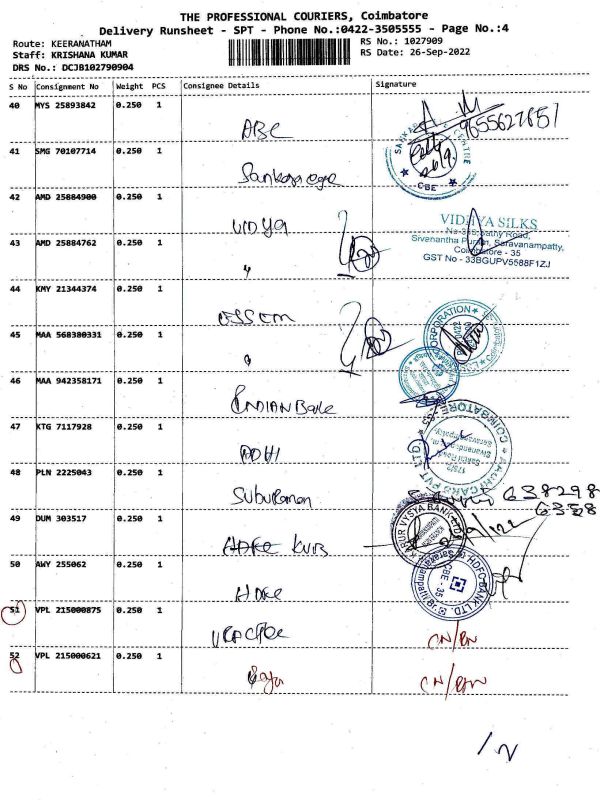 THE PROFESSIONAL COURIERS, Coimbatore
Delivery Runsheet - SPT - Phone No.:0422-3505555 - Page No.:4
Route: KEERANATHAM
RS No.: 1027909
Staff: KRISHANA KUMAR
RS Date: 26-Sep-2022
DRS No.: DCJB102790904
S No Consignment No Weight PCS Consignee Details Signature
40 MYS 25893842 0.250 1
ABC
9655627657
41 SMG 70107714 0.250 1
CENTRE
CBE
42 AMD 25884900 0.250 1
VIDYA
VIDHYA SILKS
Sathy Road,
43 AMD 25884762 0.250 1
Sivanantha Puram, Saravanampatty,
Coimbatore - 35
GST No - 33BGUPV5588F1ZJ
44 KMY 21344374 0.250 1
ESSEM
CORPORATION
45 MAA 568380331 0.250 1
46 MAA 942358171 0.250 1
INDIAN Bank
COIMBATORE
47 KTG 7117928 0.250 1
ADHI
PVT LTD
48 PLN 2225043 0.250 1
Suburaman
638298
6358
49 DUM 303517 0.250 1
KARUR VYSYA BANK LTD
50 AWY 255062 0.250 1
HDFC
HDFC BANK LTD.
CBE - 35
51 VPL 215000875 0.250 1
CN/RN
52 VPL 215000621 0.250 1
Raja
CN/RN